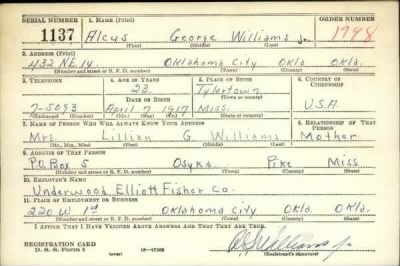 SERIAL NUMBER 1. NAME (Print) ORDER NUMBER
1137 Alcus George Williams Jr. 1798
(First) (Middle) (Last)
2. ADDRESS (Print)
432 N.E. 14 Oklahoma City Okla Okla.
(Number and street or R. F. D. number) (Town) (County) (State)
3. TELEPHONE 4. AGE IN YEARS 5. PLACE OF BIRTH 6. COUNTRY OF CITIZENSHIP
23 Tylertown
DATE OF BIRTH (Town or county)
7-5093 April 7 1917 Miss. U.S.A.
(Exchange) (Number) (Mo.) (Day) (Yr.) (State or country)
7. NAME OF PERSON WHO WILL ALWAYS KNOW YOUR ADDRESS 8. RELATIONSHIP OF THAT PERSON
Mrs. Lillian G Williams Mother
(Mr., Mrs., Miss) (First) (Middle) (Last)
9. ADDRESS OF THAT PERSON
P.O. Box 5 Osyka Pike Miss
(Number and street or R. F. D. number) (Town) (County) (State)
10. EMPLOYER'S NAME
Underwood Elliott Fisher Co.
11. PLACE OF EMPLOYMENT OR BUSINESS
220 W 1st Oklahoma City Okla. Okla
(Number and street or R. F. D. number) (Town) (County) (State)
I AFFIRM THAT I HAVE VERIFIED ABOVE ANSWERS AND THAT THEY ARE TRUE.
REGISTRATION CARD
D. S. S. Form 1 (over) 16-17105 (Registrant's signature)